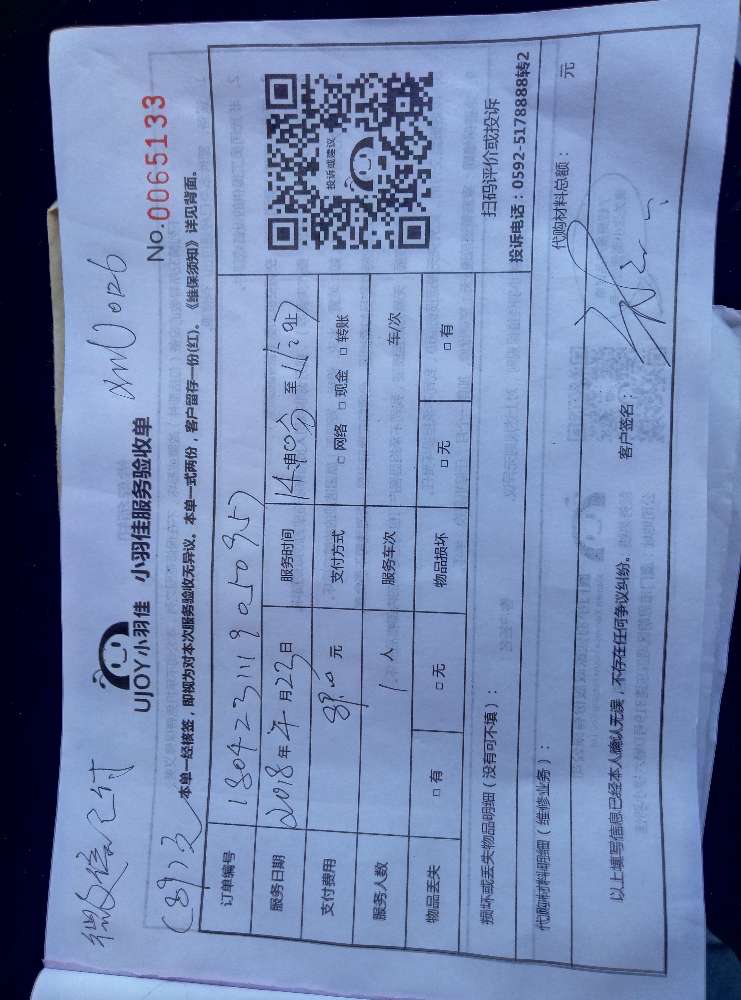 微信已付
UJOY小羽佳 小羽佳服务验收单
No.0065133
本单一经核签，即视为对本次服务验收无异议。本单一式两份，客户留存一份(红)。《维保须知》详见背面。
订单编号
服务日期 2018年4月23日 服务时间 至
支付费用 元 支付方式 □网络 □现金 □转账
服务人数 1人 服务车次 车/次
物品丢失 □有 □无 物品损坏 □无 □有
投诉或建议
扫码评价或投诉
投诉电话：0592-5178888转2
损坏或丢失物品明细（没有可不填）：
代购材料明细（维修业务）： 代购材料总额： 元
以上填写信息已经本人确认无误，不存在任何争议纠纷。 客户签名：